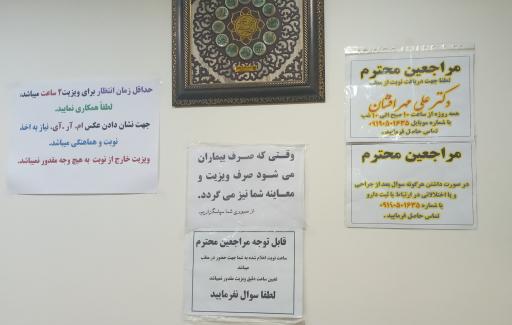 حداقل زمان انتظار برای ویزیت ۲ ساعت میباشد.
لطفاً همکاری نمایید.
جهت نشان دادن عکس ام. آر. آی. نیاز به اخذ
نوبت و هماهنگی میباشد.
ویزیت خارج از نوبت به هیچ وجه مقدور نمیباشد.
وقتی که صرف بیماران
می شود صرف ویزیت و
معاینه شما نیز می گردد.
از صبوری شما سپاسگزاریم.
قابل توجه مراجعین محترم
ساعت نوبت اعلام شده به شما جهت حضور در مطب
میباشد
تعیین ساعت دقیق ویزیت مقدور نمیباشد
لطفا سوال نفرمایید
مراجعین محترم
لطفا جهت دریافت نوبت از مطب
دکتر علی مهرافشان
همه روزه از ساعت ۱۰ صبح الی ۱۰ شب
با شماره موبایل ۰۹۱۹۰۵۰۱۶۳۵
تماس حاصل فرمایید.
مراجعین محترم
در صورت داشتن هرگونه سوال بعد از جراحی
و یا اختلالاتی در ارتباط با ثبت دارو
با شماره ۰۹۱۹۰۵۰۱۶۳۵
تماس حاصل فرمایید.